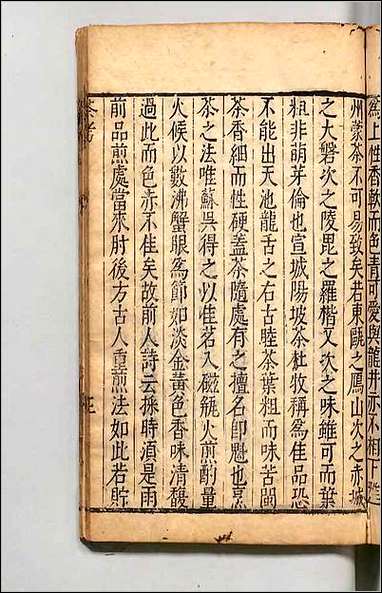 爲上性香軟而色青可愛與龍井亦不相下雅
州蒙茶不可易致矣若東甌之鳳山次之赤城
之大磐次之陵毘之羅楷又次之味雖可而葉
粗非萌芽倫也宣城陽坡茶杜牧稱爲佳品恐
不能出天池龍舌之右古睦茶葉粗而味苦閩
茶香細而性硬蓋茶隨處有之擅名即魁也烹
茶之法唯蘇吳得之以佳茗入磁瓶火煎酌量
火候以數沸蟹眼爲節如淡金黃色香味清馥
過此而色赤不佳矣故前人詩云採時須是雨
前品煎處當來肘後方古人重煎法如此若貯
茶考